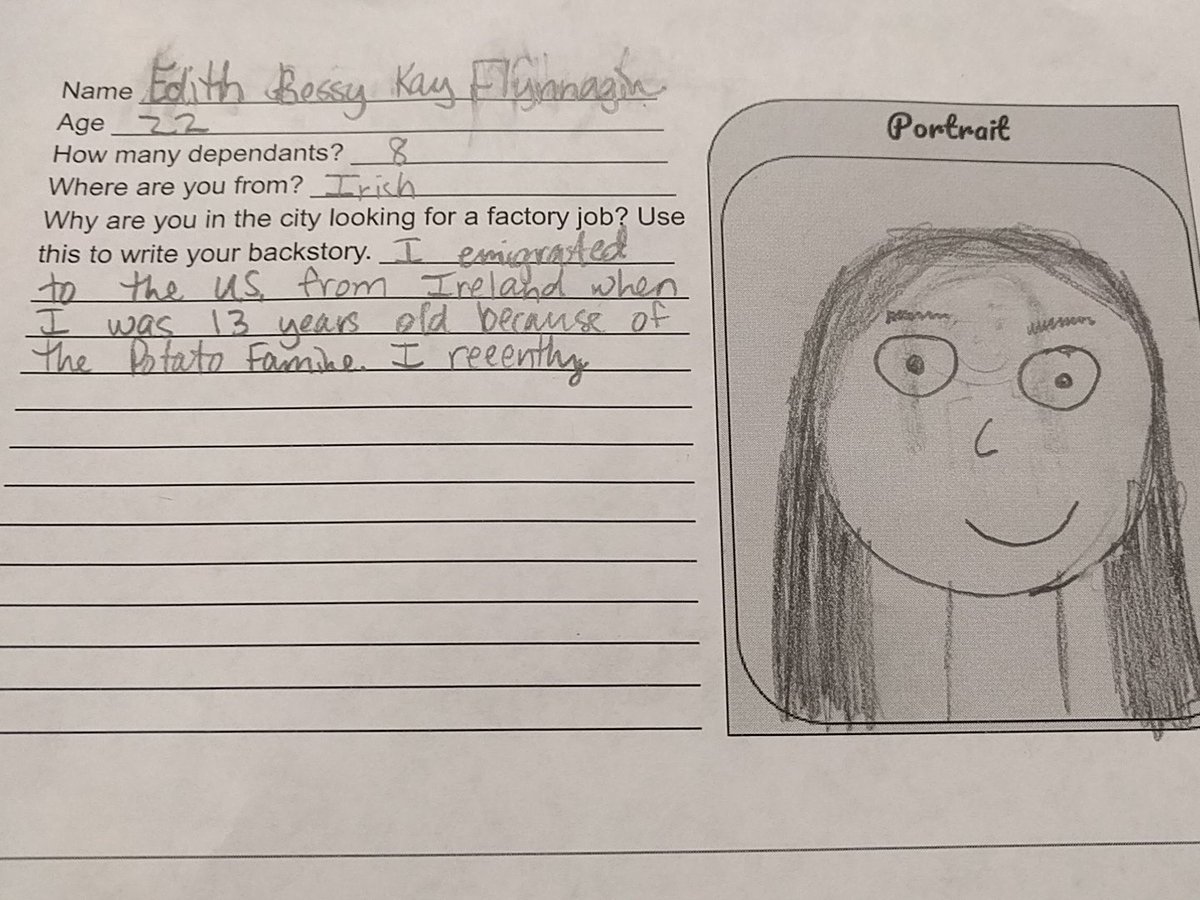 Name Edith Bessy Kay Flynnagin
Age 22
How many dependants? 8
Where are you from? Irish
Why are you in the city looking for a factory job? Use
this to write your backstory. I emigrated
to the U.S. from Ireland when
I was 13 years old because of
the Potato Famine. I recently
Portrait